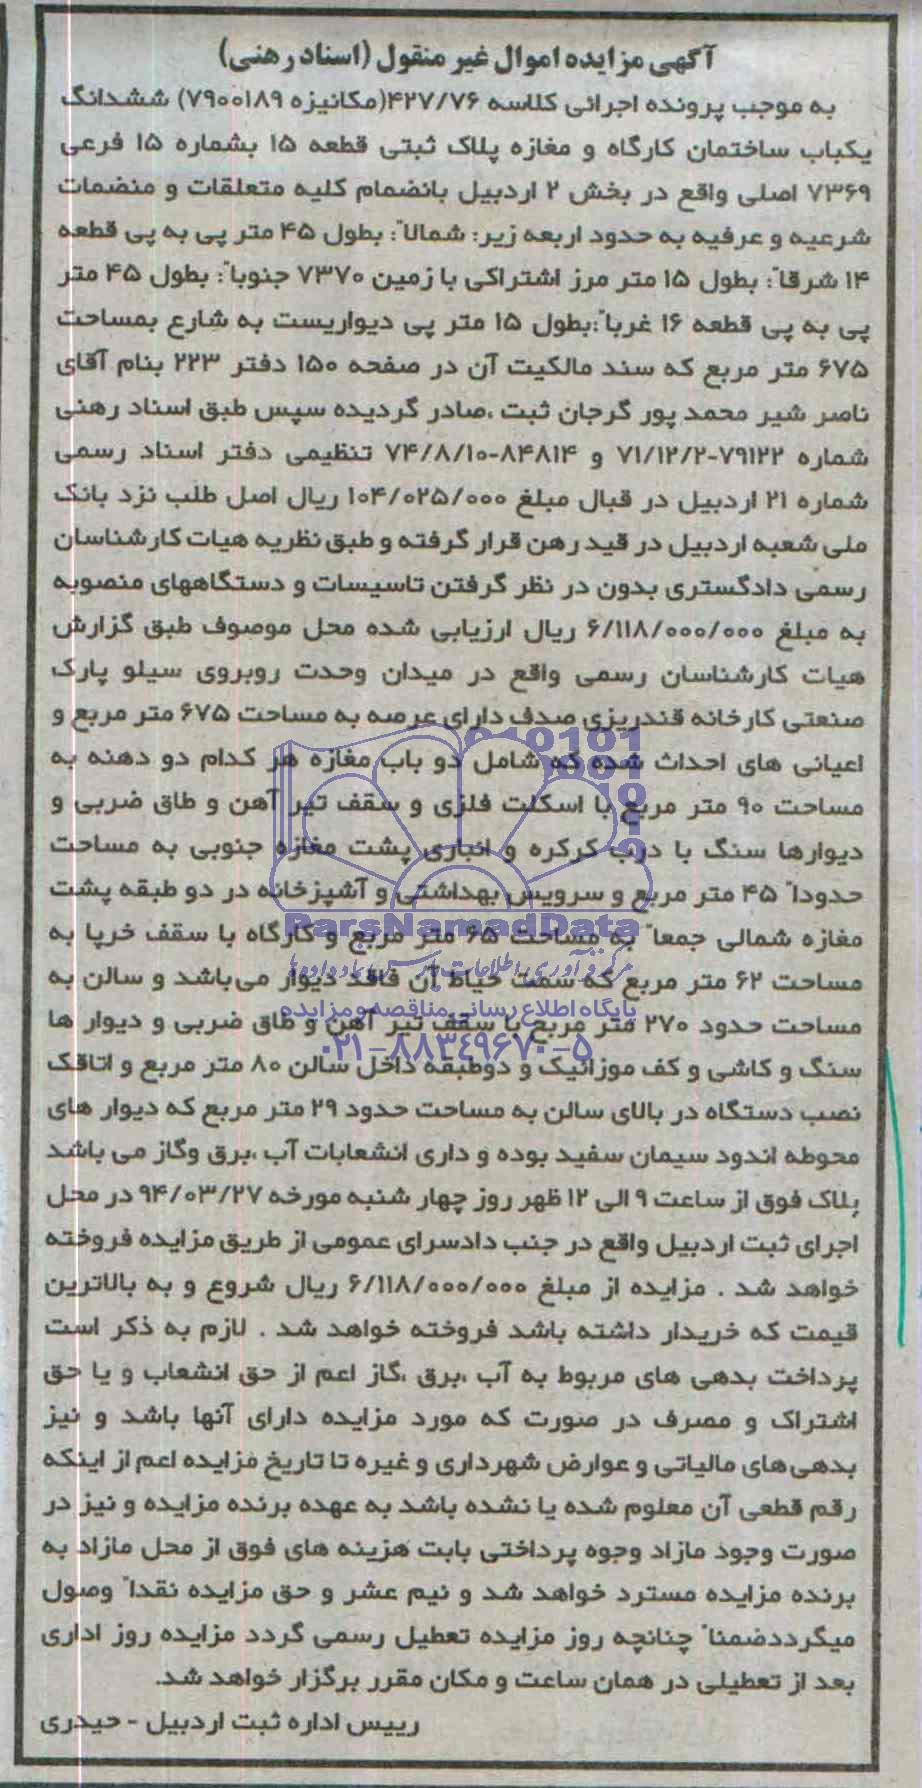 آگهی مزایده اموال غیر منقول (اسناد رهنی)
به موجب پرونده اجرائی کلاسه ۴۲۷/۷۶(مکانیزه ۷۹۰۰۱۸۹) ششدانگ
یکباب ساختمان کارگاه و مغازه پلاک ثبتی قطعه ۱۵ بشماره ۱۵ فرعی
۷۳۶۹ اصلی واقع در بخش ۲ اردبیل بانضمام کلیه متعلقات و منضمات
شرعیه و عرفیه به حدود اربعه زیر: شمالاً: بطول ۴۵ متر پی به پی قطعه
۱۴ شرقاً: بطول ۱۵ متر مرز اشتراکی با زمین ۷۳۷۰ جنوباً: بطول ۴۵ متر
پی به پی قطعه ۱۶ غرباً:بطول ۱۵ متر پی دیواریست به شارع بمساحت
۶۷۵ متر مربع که سند مالکیت آن در صفحه ۱۵۰ دفتر ۲۲۳ بنام آقای
ناصر شیر محمد پور گرجان ثبت ،صادر گردیده سپس طبق اسناد رهنی
شماره ۷۹۱۲۲-۷۱/۱۲/۲ و ۸۴۸۱۴-۷۴/۸/۱۰ تنظیمی دفتر اسناد رسمی
شماره ۲۱ اردبیل در قبال مبلغ ۱۰۴/۰۲۵/۰۰۰ ریال اصل طلب نزد بانک
ملی شعبه اردبیل در قید رهن قرار گرفته و طبق نظریه هیات کارشناسان
رسمی دادگستری بدون در نظر گرفتن تاسیسات و دستگاههای منصوبه
به مبلغ ۶/۱۱۸/۰۰۰/۰۰۰ ریال ارزیابی شده محل موصوف طبق گزارش
هیات کارشناسان رسمی واقع در میدان وحدت روبروی سیلو پارک
صنعتی کارخانه قندریزی صدف دارای عرصه به مساحت ۶۷۵ متر مربع و
اعیانی های احداث شده که شامل دو باب مغازه هر کدام دو دهنه به
مساحت ۹۰ متر مربع با اسکلت فلزی و سقف تیر آهن و طاق ضربی و
دیوارها سنگ با درب کرکره و انباری پشت مغازه جنوبی به مساحت
حدوداً ۴۵ متر مربع و سرویس بهداشتی و آشپزخانه در دو طبقه پشت
مغازه شمالی جمعاً به مساحت ۶۵ متر مربع و کارگاه با سقف خرپا به
مساحت ۶۲ متر مربع که سمت حیاط آن فاقد دیوار می‌باشد و سالن به
مساحت حدود ۲۷۰ متر مربع با سقف تیر آهن و طاق ضربی و دیوار ها
سنگ و کاشی و کف موزائیک و دوطبقه داخل سالن ۸۰ متر مربع و اتاقک
نصب دستگاه در بالای سالن به مساحت حدود ۲۹ متر مربع که دیوار های
محوطه اندود سیمان سفید بوده و داری انشعابات آب ،برق وگاز می باشد
پلاک فوق از ساعت ۹ الی ۱۲ ظهر روز چهار شنبه مورخه ۹۴/۰۳/۲۷ در محل
اجرای ثبت اردبیل واقع در جنب دادسرای عمومی از طریق مزایده فروخته
خواهد شد . مزایده از مبلغ ۶/۱۱۸/۰۰۰/۰۰۰ ریال شروع و به بالاترین
قیمت که خریدار داشته باشد فروخته خواهد شد . لازم به ذکر است
پرداخت بدهی های مربوط به آب ،برق ،گاز اعم از حق انشعاب و یا حق
اشتراک و مصرف در صورت که مورد مزایده دارای آنها باشد و نیز
بدهی‌های مالیاتی و عوارض شهرداری و غیره تا تاریخ مزایده اعم از اینکه
رقم قطعی آن معلوم شده یا نشده باشد به عهده برنده مزایده و نیز در
صورت وجود مازاد وجوه پرداختی بابت هزینه های فوق از محل مازاد به
برنده مزایده مسترد خواهد شد و نیم عشر و حق مزایده نقداً وصول
میگرددضمناً چنانچه روز مزایده تعطیل رسمی گردد مزایده روز اداری
بعد از تعطیلی در همان ساعت و مکان مقرر برگزار خواهد شد.
رییس اداره ثبت اردبیل - حیدری
ParsNamadData
پایگاه اطلاع رسانی مناقصه و مزایده
۰۲۱-۸۸۳۴۹۶۷۰-۵